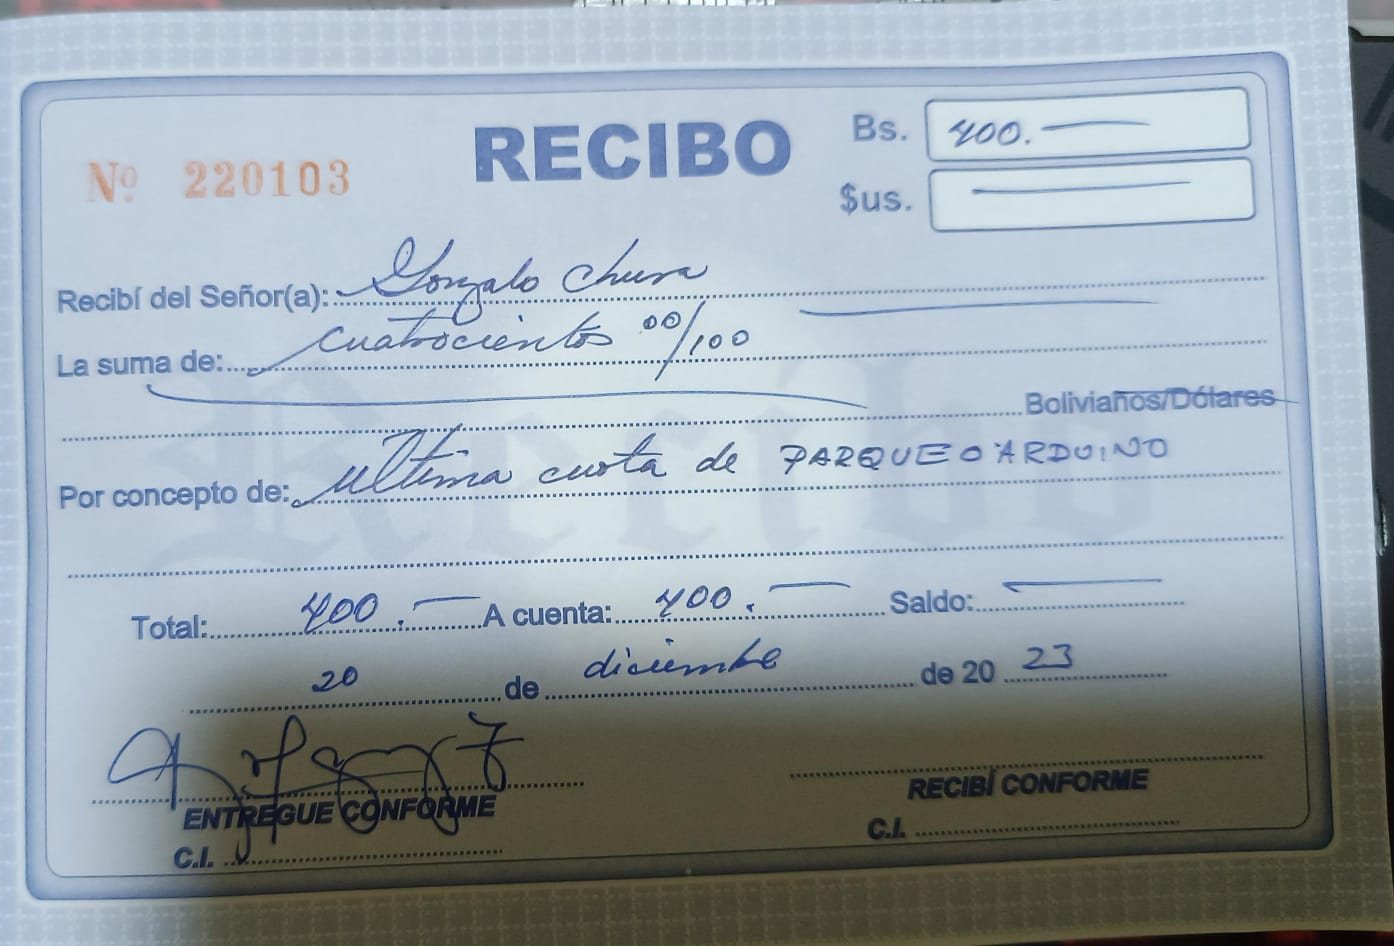 RECIBO
Nº 220103
Bs. 400.
$us.
Recibí del Señor(a): Gonzalo Chura
La suma de: cuatrocientos 00/100
Bolivianos/Dólares
Por concepto de: ultima cuota de PARQUEO ARDUINO
Total: 400. A cuenta: 400. Saldo:
20 de diciembre de 20 23
ENTREGUE CONFORME
C.I.
RECIBÍ CONFORME
C.I.